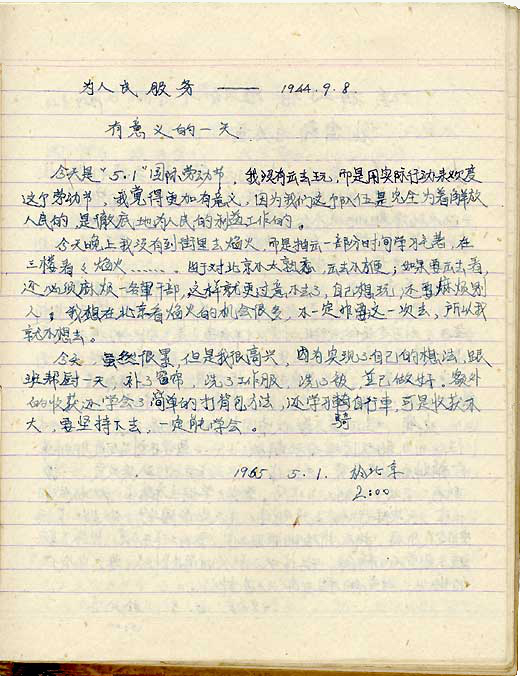 为人民服务 —— 1944.9.8.
有意义的一天
今天是“5.1”国际劳动节，我没有去玩，而是用实际行动来欢度
这个劳动节，我觉得更加有意义，因为我们这个队伍是完全为着解放
人民的是彻底地为人民的利益工作的。
今天晚上我没有到街里去焰火，而是抽出一部分时间学习毛著，在
三楼看了焰火……。由于对北京不太熟悉，出去不方便，如果要出去看，
还必须麻烦一名军干部，这样就更过意不去了，自己想玩，还要麻烦别
人；我想在北京看焰火的机会很多，不一定非要这一次去，所以我
就不想去。
今天虽然很累，但是我很高兴，因为实现了自己的想法，跟
班帮厨一天，补了窗布，洗了工作服，洗了被，并已做好。额外
的收获还学会了简单的打背包方法，还学习骑自行车，可是收获不
大，要坚持下去，一定能学会。
骑
1965.5.1.於北京
2:00